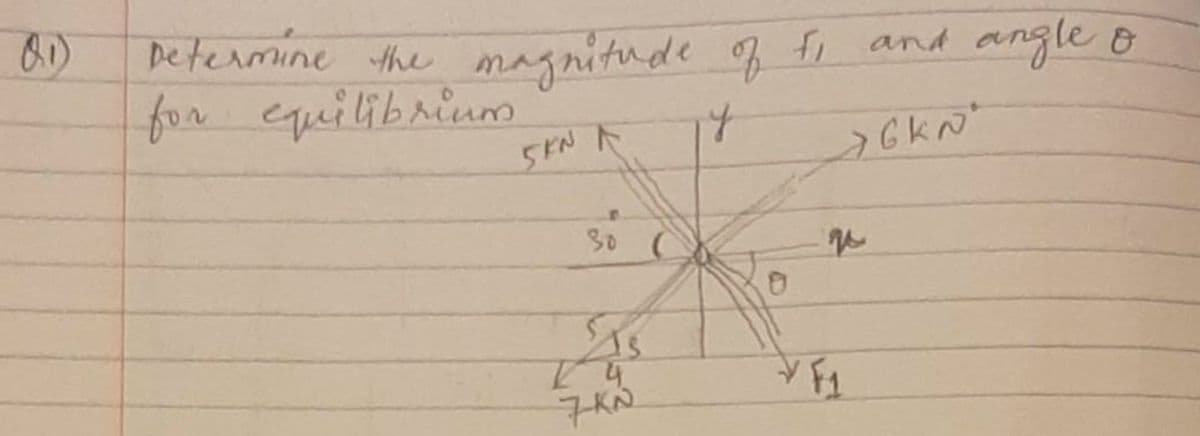 Q1) Determine the magnitude of F1 and angle θ
for equilibrium
5KN
y
6KN
30°
x
θ
5
4
7KN
F1